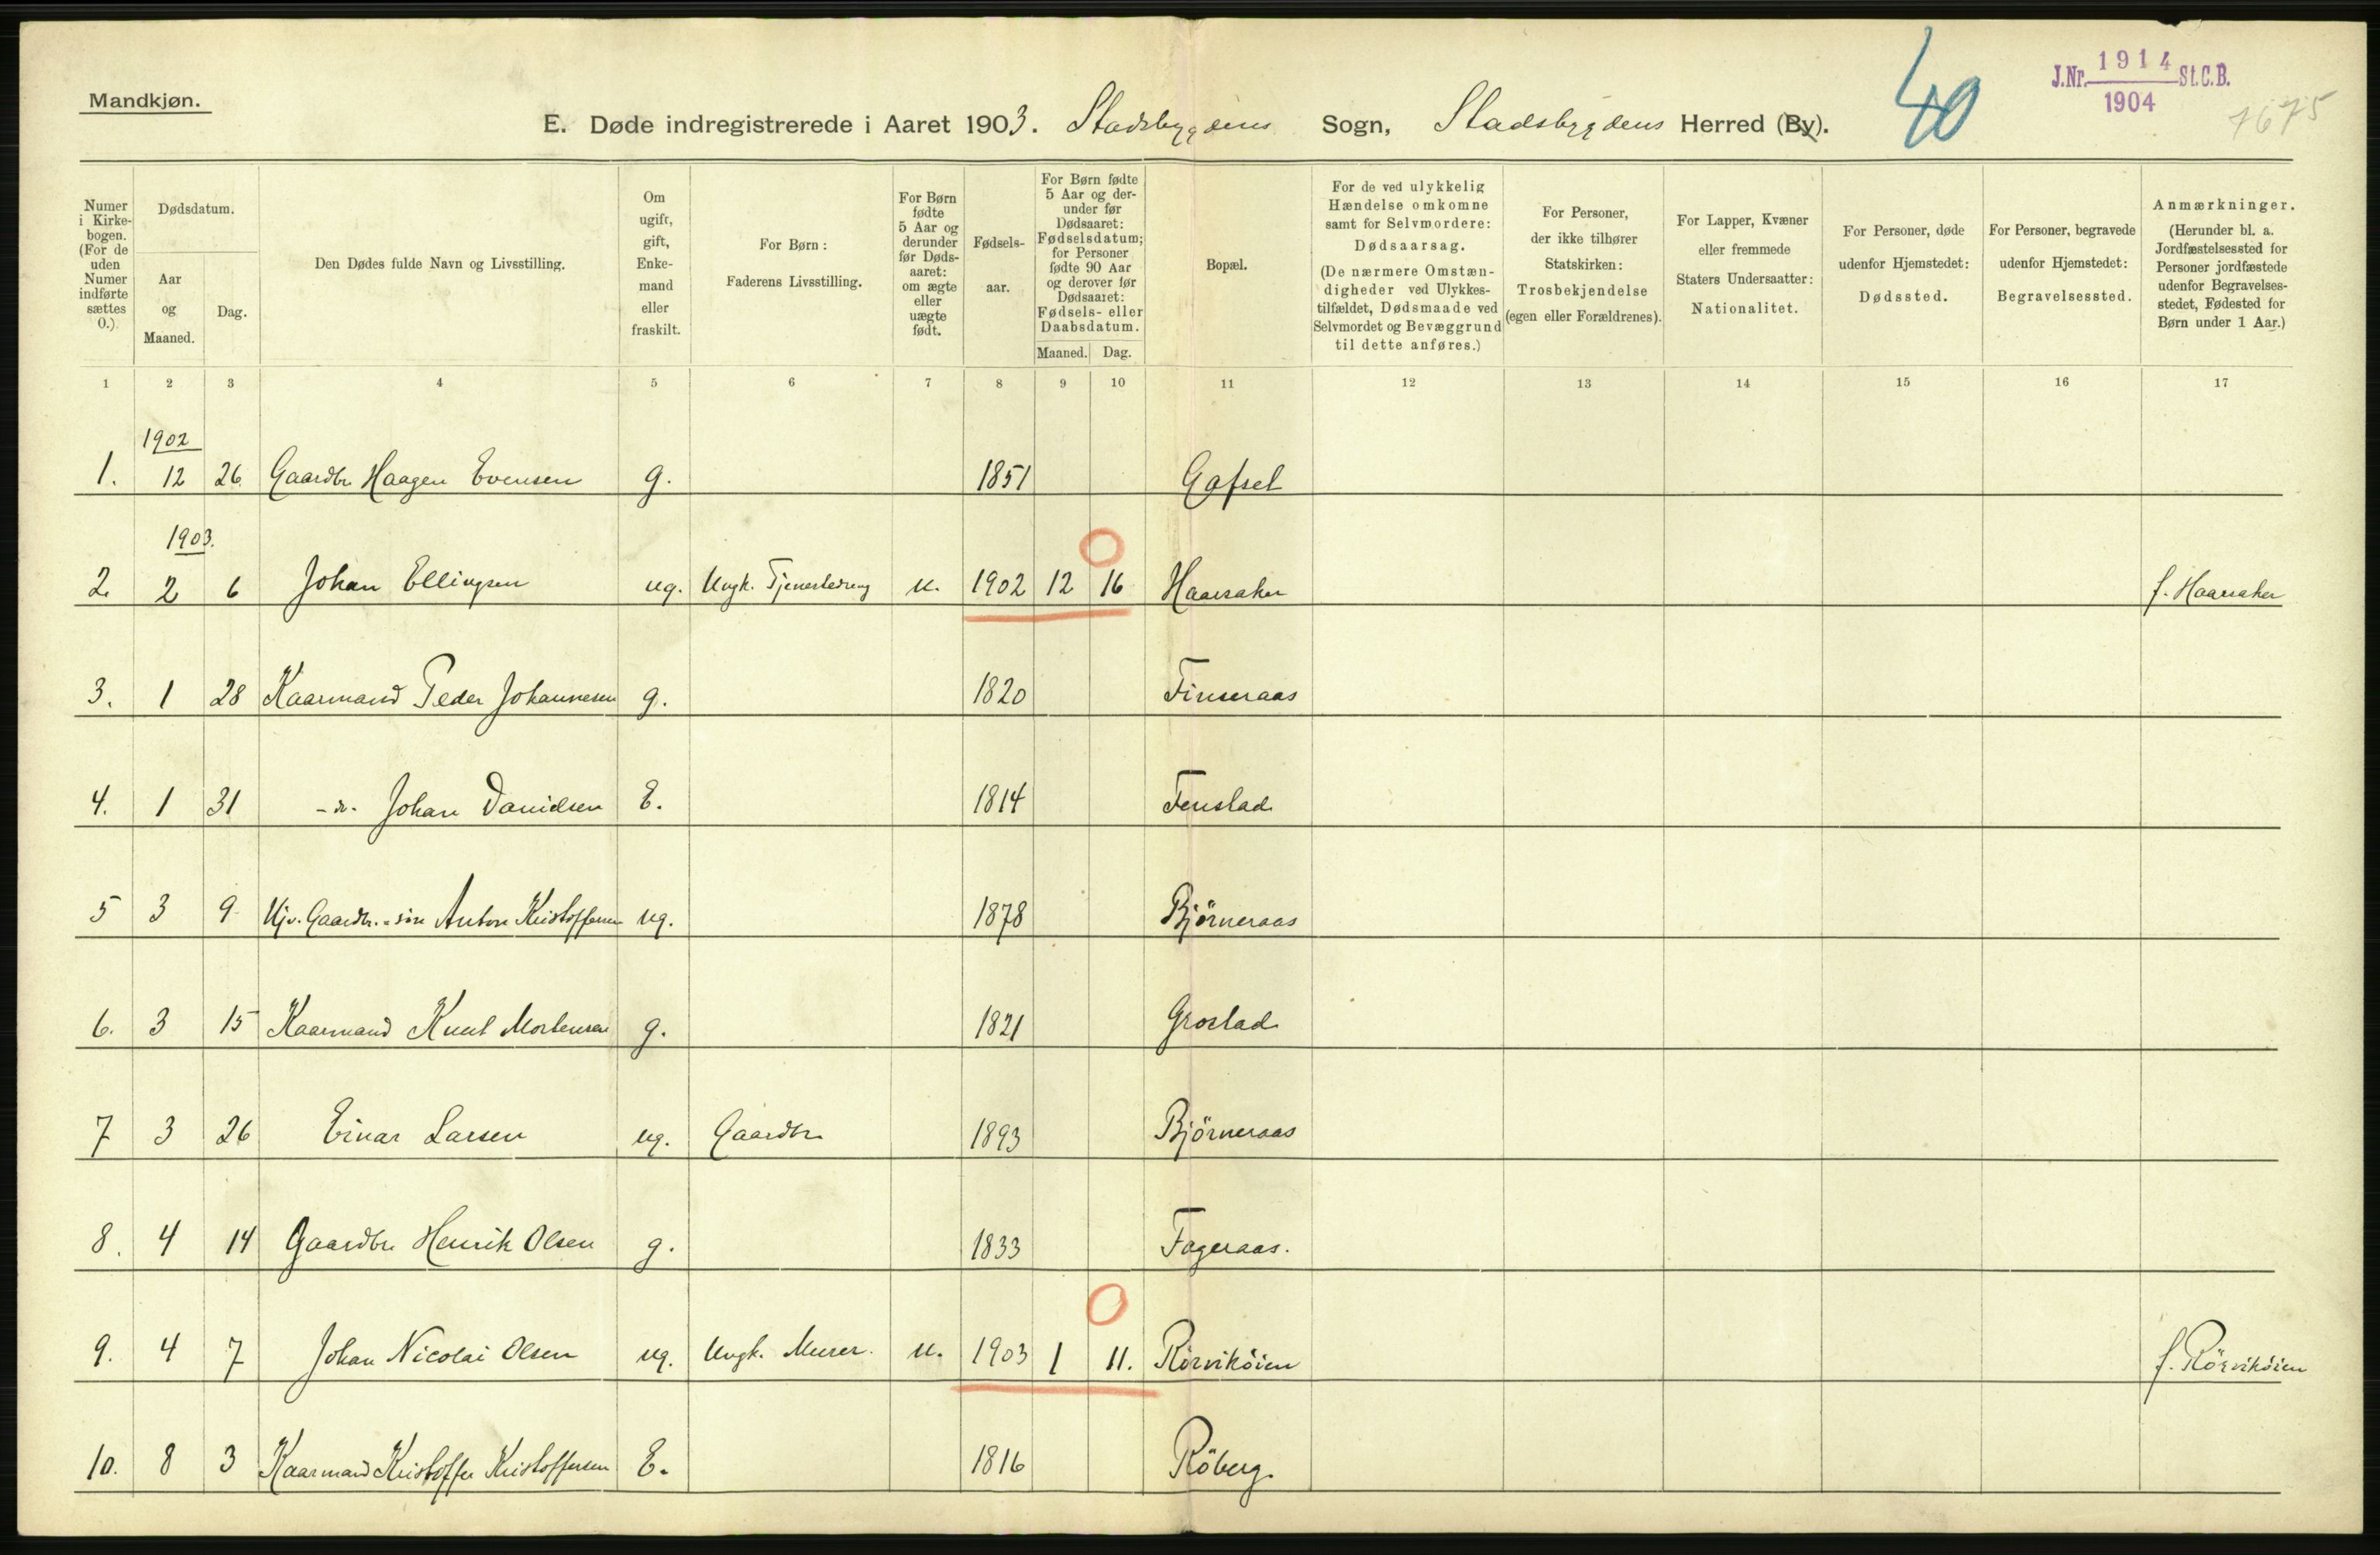 Mandkjøn.
E. Døde indregistrerede i Aaret 1903. Stadsbygdens Sogn, Stadsbygdens Herred (By).
40
J.Nr. 1914 St.C.B.
1904
7675
Numer i Kirkebogen. (For de uden Numer indførte sættes 0.)
Dødsdatum.
Aar og Maaned.
Dag.
Den Dødes fulde Navn og Livsstilling.
Om ugift, gift, Enkemand eller fraskilt.
For Børn: Faderens Livsstilling.
For Børn fødte 5 Aar og derunder før Dødsaaret: om ægte eller uægte født.
Fødselsaar.
For Børn fødte 5 Aar og derunder før Dødsaaret: Fødselsdatum; for Personer fødte 90 Aar og derover før Dødsaaret: Fødsels- eller Daabsdatum.
Maaned. Dag.
Bopæl.
For de ved ulykkelig Hændelse omkomne samt for Selvmordere: Dødsaarsag. (De nærmere Omstændigheder ved Ulykkestilfældet, Dødsmaade ved Selvmordet og Bevæggrund til dette anføres.)
For Personer, der ikke tilhører Statskirken: Trosbekjendelse (egen eller Forældrenes).
For Lapper, Kvæner eller fremmede Staters Undersaatter: Nationalitet.
For Personer, døde udenfor Hjemstedet: Dødssted.
For Personer, begravede udenfor Hjemstedet: Begravelsessted.
Anmærkninger. (Herunder bl. a. Jordfæstelsessted for Personer jordfæstede udenfor Begravelsesstedet, Fødested for Børn under 1 Aar.)
1 2 3 4 5 6 7 8 9 10 11 12 13 14 15 16 17
1902
1. 12 26. Gaardbr. Haagen Evensen g. 1851
1903.
2. 2 6 Johan Ellingsen ug. Ungk. Tjenestedreng u. 1902 12 16 Haarsaker f. Haarsaker
3. 1 28 Kaarmand Peder Johannesen g. 1820 Finseraas
4. 1 31 -"- Johan Danidsen E. 1814 Fenstad
5 3 9 Gaardbr.-søn Anton Kristoffersen ug. 1878 Björneraas
6. 3 15 Kaarmand Knut Mortensen g. 1821 Grostad
7 3 26 Einar Larsen ug. Gaardbr. 1893 Björneraas
8. 4 14 Gaardbr. Henrik Olsen g. 1833 Fageraas.
9. 4 7 Johan Nicolai Olsen ug. Ungk. Murer. u. 1903 1 11. Rörviköien f. Rörviköien
10. 8 3 Kaarmand Kristoffer Kristoffersen E. 1816 Röberg.